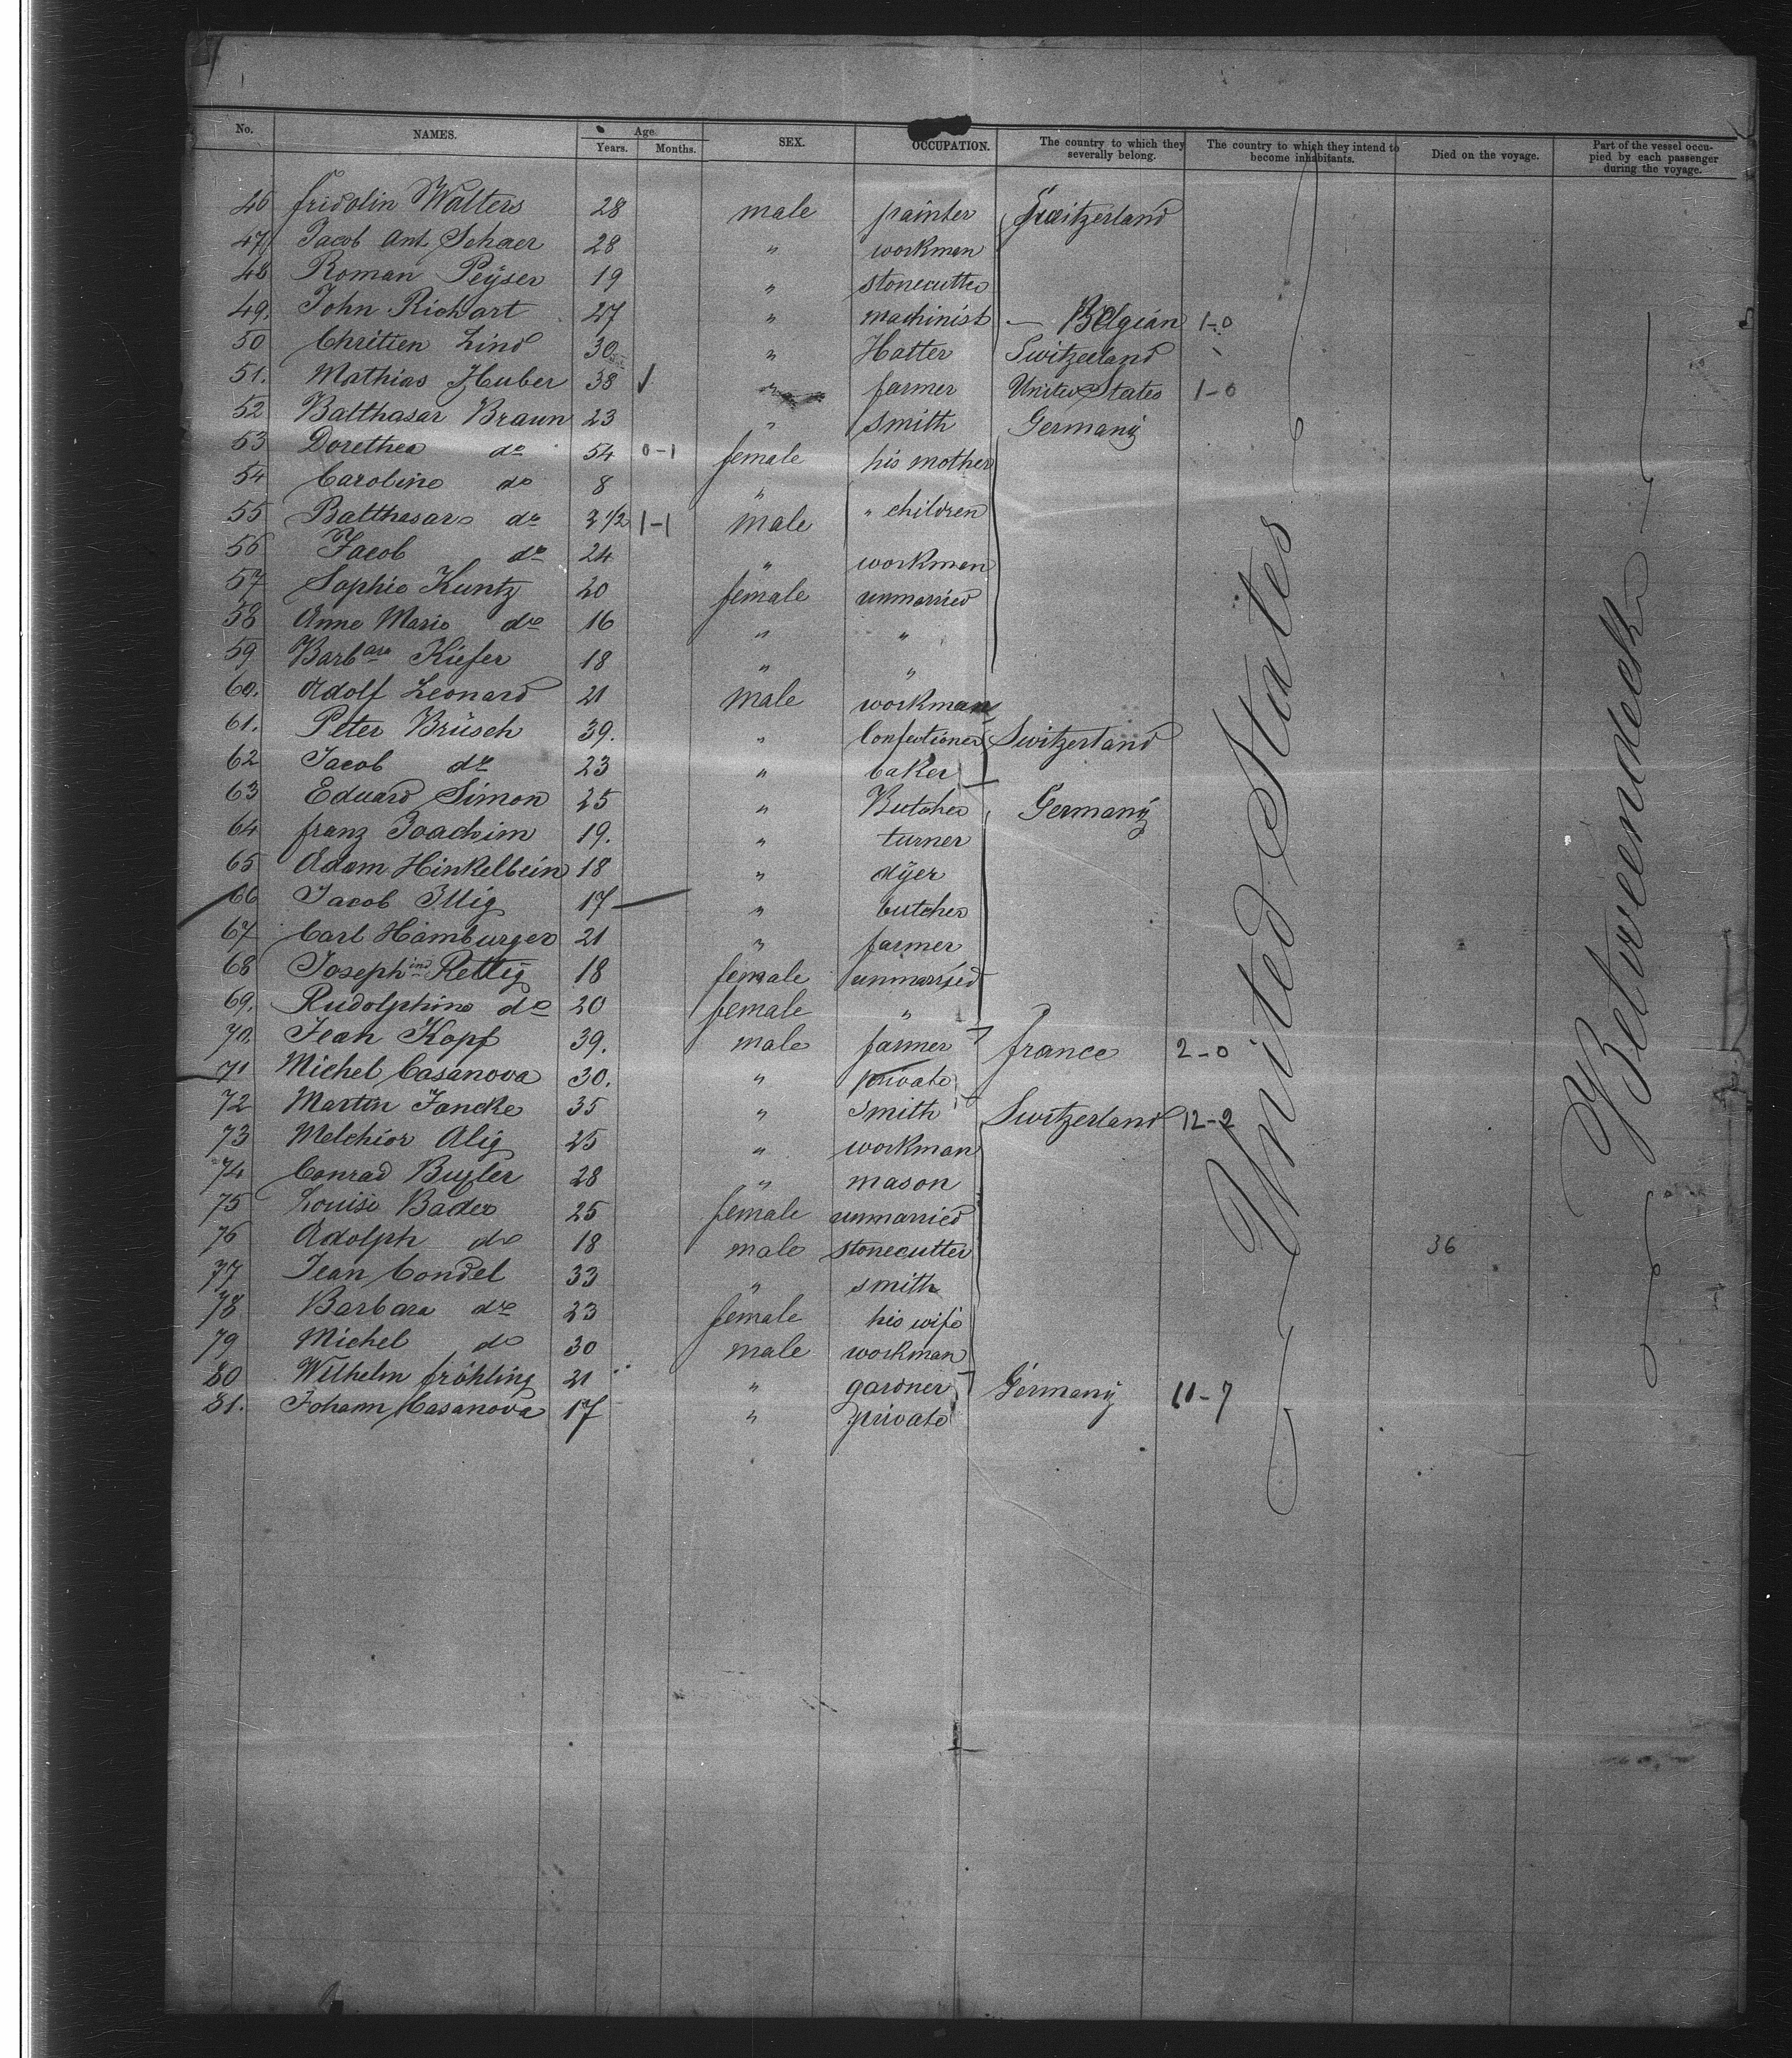 No. NAMES. Age. Years. Months. SEX. OCCUPATION. The country to which they severally belong. The country to which they intend to become inhabitants. Died on the voyage. Part of the vessel occupied by each passenger during the voyage.
46 fridolin Walters 28 male painter Switzerland
47 Jacob Ant. Schaer 28 " workman
48 Roman Peÿser 19 " stonecutter
49. John Richart 27 " machinist — Belgian 1-0
50 Chritien Lind 30 " Hatter Switzerland
51. Mathias Huber 38 √ " farmer United States 1-0
52 Balthasar Braun 23 " smith Germany
53 Dorethea do 54 0-1 female his mother
54 Caroline do 8 "
55 Balthasar do 3 1/2 1-1 male " children
56 Jacob do 24 " workman
57 Sophie Kuntz 20 female unmarried
58 Anne Marie do 16 " "
59 Barbara Kiefer 18 " "
60. Adolf Leonard 21 male workman
61. Peter Brüsch 39. " Confectioner Switzerland
62 Jacob do 23 " baker
63 Eduard Simon 25 " Butcher Germany
64 franz Joachim 19. " turner
65 Adam Hinkelbein 18 " dÿer
66 Jacob Illig 17 " butcher
67 Carl Hamburger 21 " farmer
68 Josephine Rettig 18 female unmarried
69. Rudolphine do 20 female "
70. Jean Kopf 39. male farmer france 2-0
71 Michel Casanova 30. " private
72 Martin Jancke 35 " smith Switzerland 12-2
73 Melchior Alig 25 " workman
74 Conrad 28 " mason
75 Louise Bader 25 female unmarried
76 Adolph do 18 male stonecutter 36
77 Jean Condel 33 " smith
78 Barbara do 23 female his wife
79 Michel do 30 male workman
80 Wilhelm fröhling 21 " gardner Germany 11-7
81. Johann Casanova 17 " private
United States
Betweendeck